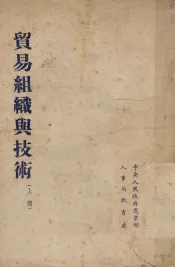 貿易組織與技術
（上冊）
中央人民政府貿易部
人事局教育處